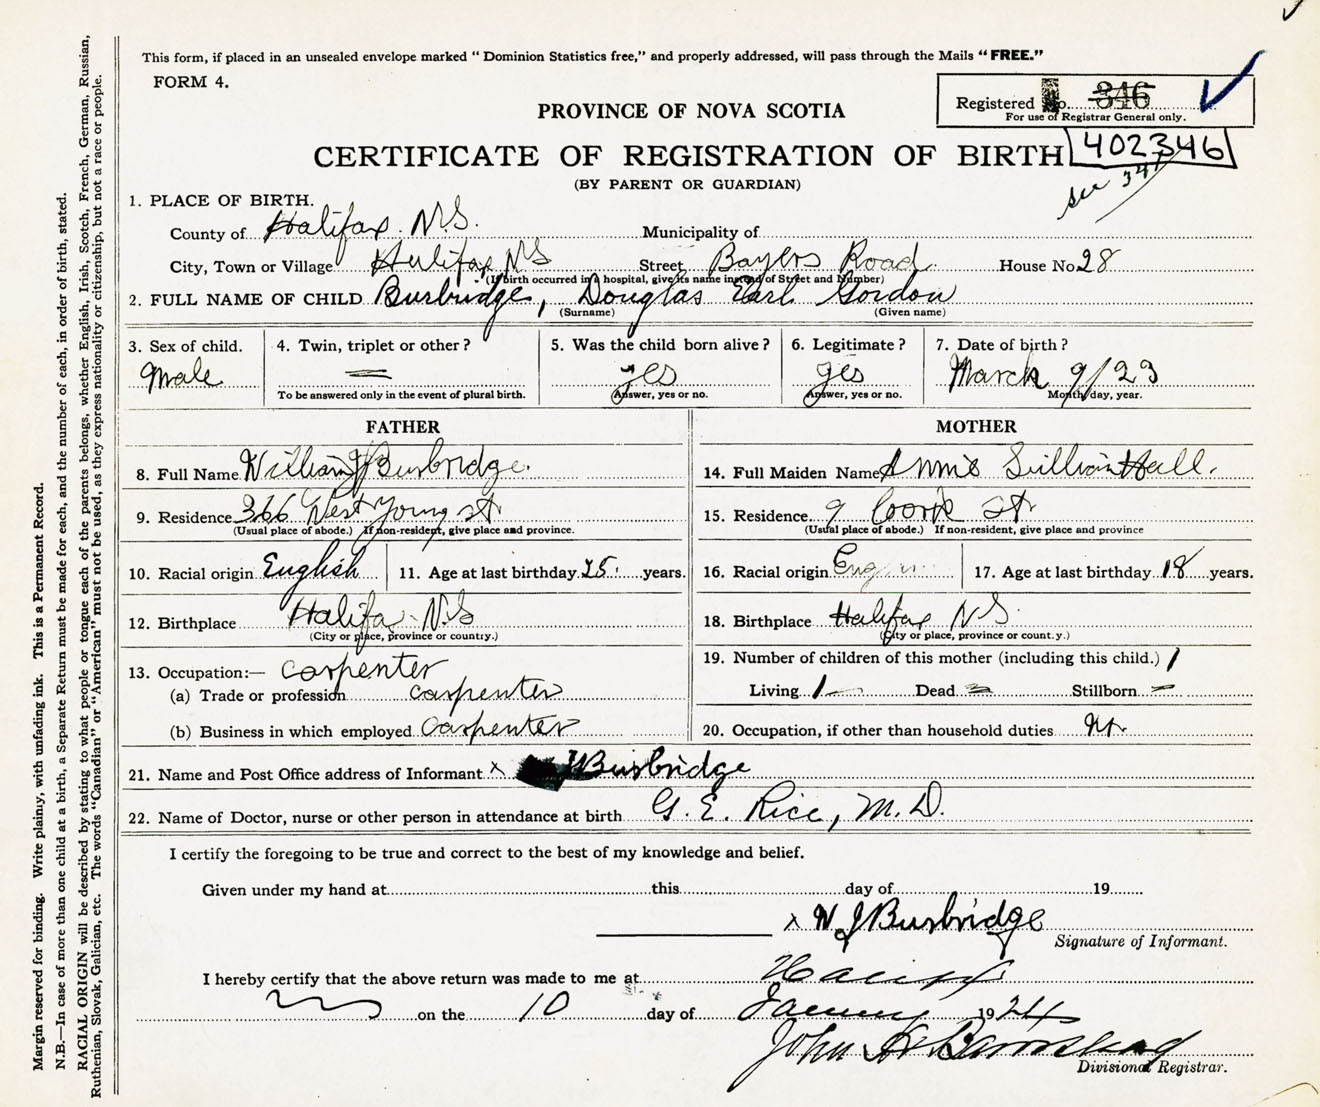 This form, if placed in an unsealed envelope marked "Dominion Statistics free," and properly addressed, will pass through the Mails "FREE."
FORM 4.
Registered No. 346
For use of Registrar General only.
PROVINCE OF NOVA SCOTIA
CERTIFICATE OF REGISTRATION OF BIRTH
402346
(BY PARENT OR GUARDIAN)
see 347
1. PLACE OF BIRTH.
County of Halifax N.S. Municipality of
City, Town or Village Halifax NS Street Bayers Road House No 28
(If birth occurred in a hospital, give its name instead of Street and Number)
2. FULL NAME OF CHILD Burbridge, Douglas Earl Gordon
(Surname) (Given name)
3. Sex of child. 4. Twin, triplet or other? 5. Was the child born alive? 6. Legitimate? 7. Date of birth?
Male = yes yes March 9/23
To be answered only in the event of plural birth. Answer, yes or no. Answer, yes or no. Month, day, year.
FATHER MOTHER
8. Full Name William J Burbridge. 14. Full Maiden Name Annie Hall.
9. Residence 366 West Young St 15. Residence 9 Cook St
(Usual place of abode.) If non-resident, give place and province. (Usual place of abode.) If non-resident, give place and province
10. Racial origin English 11. Age at last birthday 25. years. 16. Racial origin 17. Age at last birthday 18 years.
12. Birthplace Halifax N.S 18. Birthplace Halifax N S.
(City or place, province or country.) (City or place, province or count.y.)
13. Occupation:— carpenter 19. Number of children of this mother (including this child.) 1
(a) Trade or profession carpenter Living 1 — Dead = Stillborn =
(b) Business in which employed Carpenter 20. Occupation, if other than household duties
21. Name and Post Office address of Informant x J Burbridge
22. Name of Doctor, nurse or other person in attendance at birth G. E. Rice, M.D.
I certify the foregoing to be true and correct to the best of my knowledge and belief.
Given under my hand at this day of 19
x W J Burbridge
Signature of Informant.
I hereby certify that the above return was made to me at Halifax
on the 10 day of January 1924
John
Divisional Registrar.
Margin reserved for binding. Write plainly, with unfading ink. This is a Permanent Record.
N.B.—In case of more than one child at a birth, a Separate Return must be made for each, and the number of each, in order of birth, stated.
RACIAL ORIGIN will be described by stating to what people or tongue each of the parents belongs, whether English, Irish, Scotch, French, German, Russian,
Ruthenian, Slovak, Galician, etc. The words "Canadian" or "American" must not be used, as they express nationality or citizenship, but not a race or people.